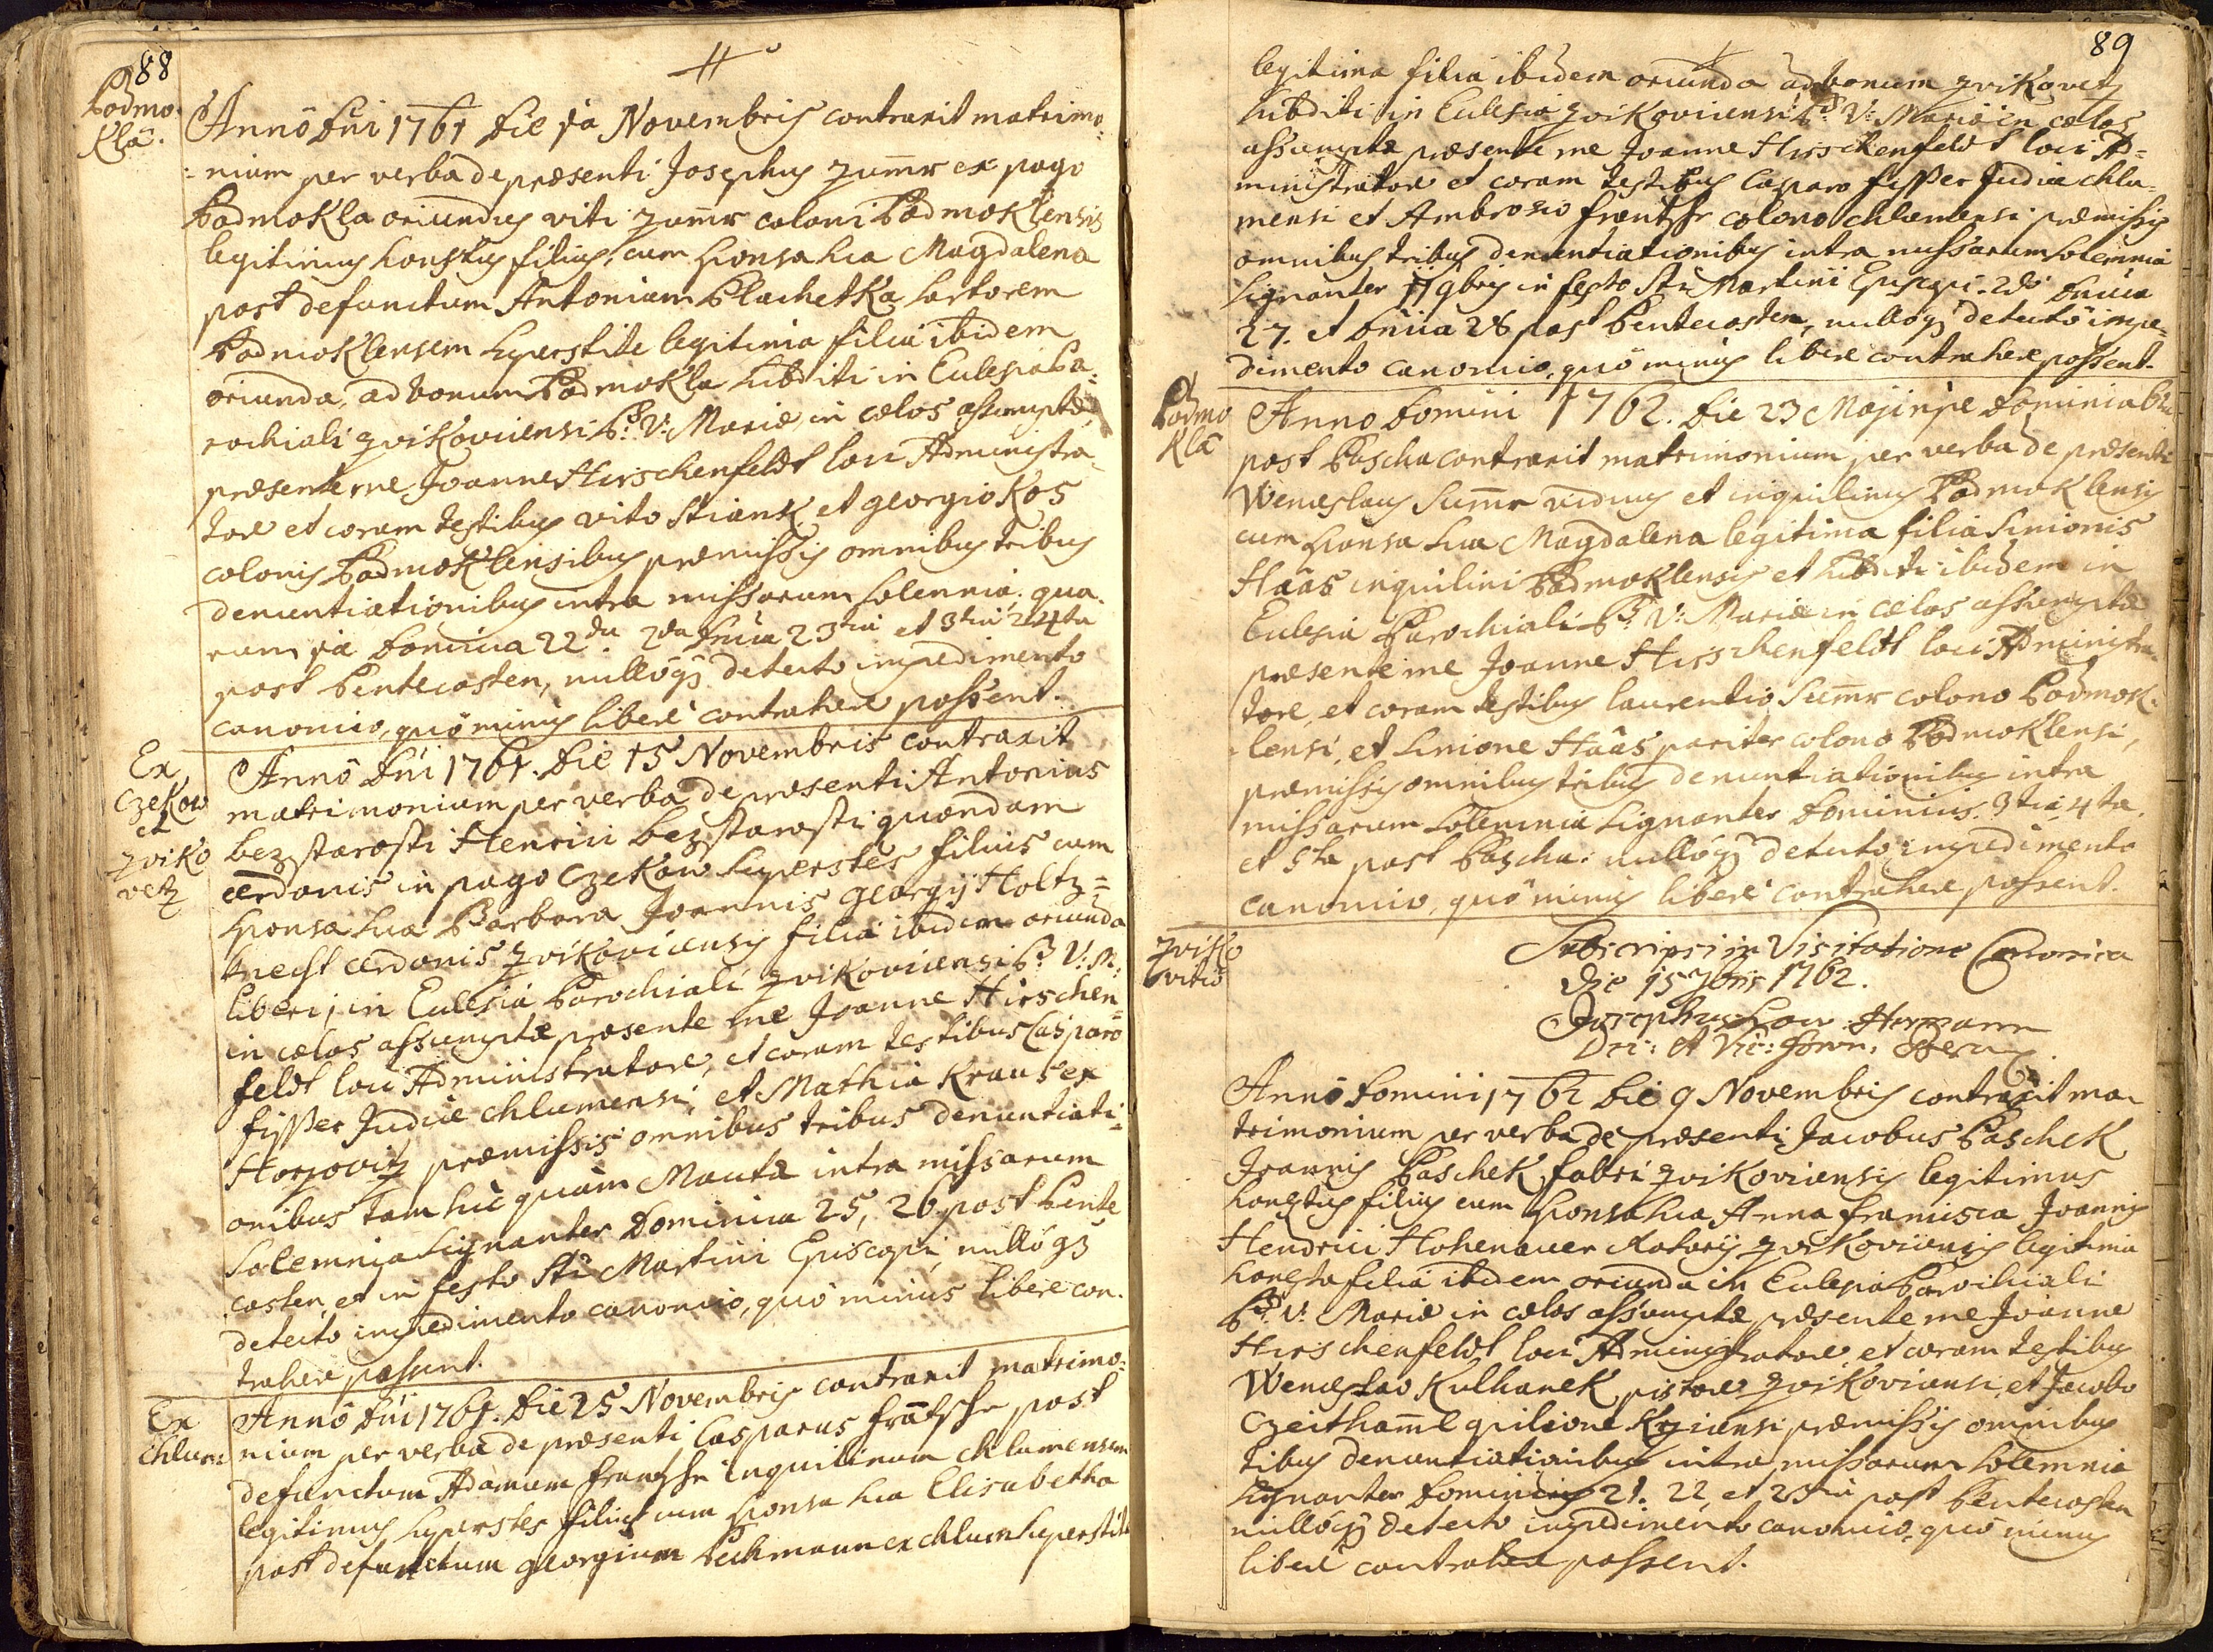 88
Podmo
kla.
Anno Dni 1761 Die 1a Novembris contraxit matrimo=
=nium per verba de præsenti Josephus Zumr ex pago
Podmokla oriundus viti Zumr coloni Podmoklensis
legitimus honestus filius, cum sponsa sua Magdalena
post defunctum Antonium Plachetka sartorem
Podmoklensem superstite legitima filia ibidem
oriunda, ad bonum Podmokla subditi in Eclesia Pa=
rochiali Zvikoviensi B: V: Mariæ in cælos assumptæ,
præsente me Joanne Hirschenfeldt loci Administra=
tore et coram testibus vito Stiank et georgio Kos
colonis Podmoklensibus præmissis omnibus tribus
denuntiationibus intra missarum solennia, qua=
rum 1a Dominica 22da 2da Dnica 23tia et 3tia 24ta
post Pentecosten, nullog detecto impedimento
canonico, quo minus libere contrahere possent.
Ex
Czekow
et
Zviko
vetz
Anno Dni 1761. Die 15 Novembris contraxit
matrimonium per verba de præsenti Antonius
bezstarosti Henrici bezstarosti quondam
cerdonis in pago Czekow superstes filius cum
sponsa sua Barbara Joannis georgij Holtz=
knecht cerdonis Zvikoviensis filia ibidem oriunda
liberi, in Eclesia Parochiali Zvikoviensi B: V: M:
in cælos assumptæ præsente me Joanne Hirschen=
feldt loci Administratore, et coram testibus Casparo
fisser Judice chlumensi, et Mathia Kraus ex
Horzovitz præmissis omnibus tribus denuntiati=
onibus tam hic quam Mautæ intra missarum
Solemnia signanter Dominica 25, 26 post Pente
costen, et in festo Sti Martini Episcopi, nullog
detecto impedimento canonico, quo minus libere con=
trahere possent.
Ex
Chlum
Anno Dni 1761. Die 25 Novembris contraxit matrimo=
nium per verba de præsenti Casparus frantshe post
defunctum Adamum frantshe inquilinum chlumensem
legitimus superstes filius cum sponsa sua Elisabetha
post defunctum georgium Pechmann ex chlum superstite
89
legitima filia ibidem oriunda ad bonum Zvikovetz
subditi in Eclesia Zvikoviensi B: V: Mariæ in cælos
assumptæ præsente me Joanne Hirschenfeldt loci Ad=
ministratore et coram testibus Casparo fisser Judice chlu=
mensi et Ambrosio frantshe colono chlumensi præmissis
omnibus tribus denuntiationibus intra missarum solemnia
signanter 11 9bris in festo Sti Martini Episcopi. 2do Dnica
27. et Dnica 28 post Pentecosten, nullog detecto impe=
dimento canonico, quo minus libere contrahere possent.
Podmo
kla
Anno Domini 1762. Die 23 Maji ipse Dominica 6ta
post Pascha contraxit matrimonium per verba de præsenti
Wenceslaus Sumr viduus et inquilinus Podmoklensis
cum sponsa sua Magdalena legitima filia Simonis
Haas inquilini Podmoklensis et subditi ibidem in
Eclesia Parochiali B: V: Mariæ in cælos assumptæ
præsente me Joanne Hirschenfeldt loci Administra=
tore, et coram testibus laurentio Sumr colono Podmok=
lensi, et Simone Haas pariter colono Podmoklensi,
præmissis omnibus tribus denuntiationibus intra
missarum solemnia signanter Dominicis. 3tia, 4ta
et 5ta post Pascha: nullog detecto impedimento
canonico, quo minus libere contrahere possent.
Zviko
vitio
Subscripsi in Visitatione Canonica
Die 15 7bris 1762.
Josephus Hermann
Anno Domini 1762 Die 9 Novembris contraxit ma=
trimonium per verba de præsenti Jacobus Paschek
Joannis Paschek fabri Zvikoviensis legitimus
honestus filius cum sponsa sua Anna francisca Joannis
Hendrici Hohenauer Rotarij Zvikoviensis legitima
honesta filia ibidem oriunda in Eclesia Parochiali
B: V: Mariæ in cælos assumptæ præsente me Joanne
Hirschenfeldt loci Administratore et coram testibus
Wenceslao Kulhanek pistore Zvikoviensi, et Jacobo
Czeithaml opilione præmissis omnibus
tribus denuntiationibus intra missarum solemnia
signanter Dominicis 21. 22, et 23tia post Pentecosten
nullog detecto impedimento canonico, quo minus
libere contrahere possent.